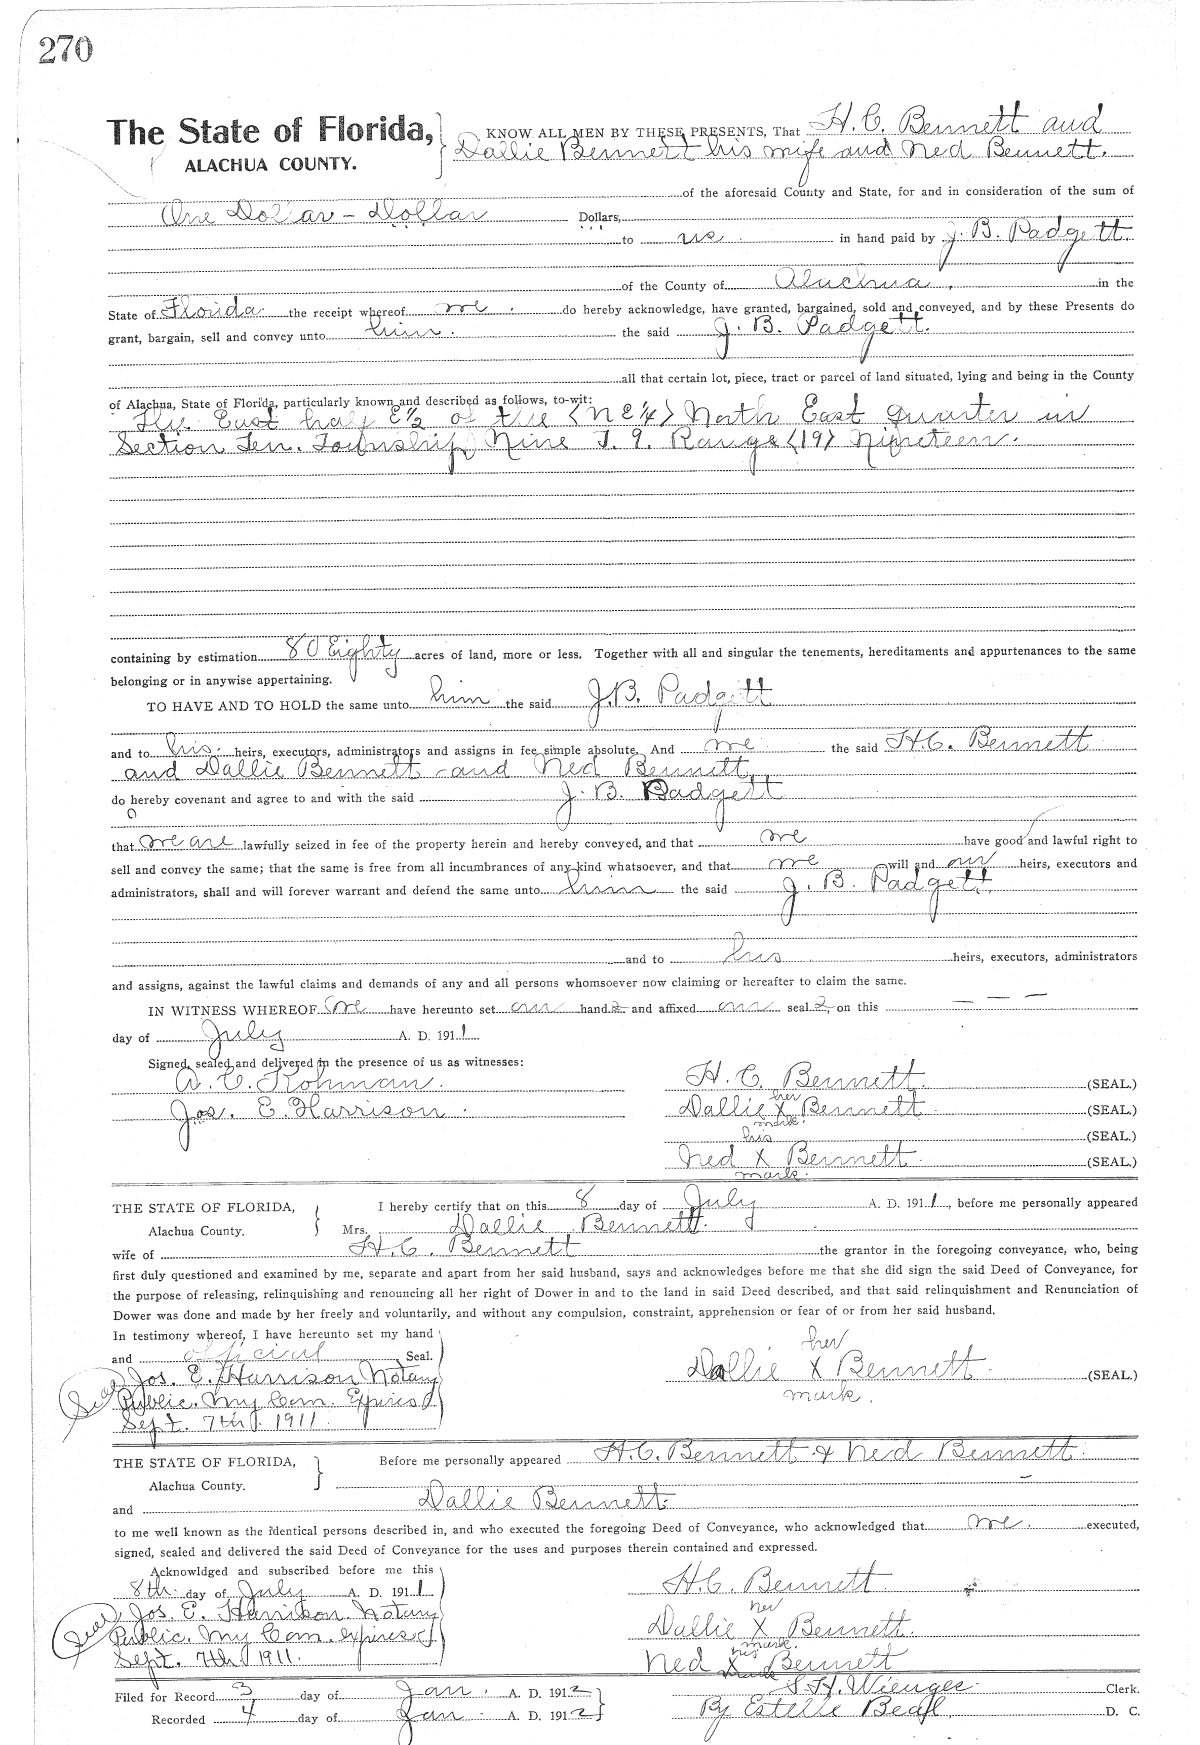 270
The State of Florida, KNOW ALL MEN BY THESE PRESENTS, That H. C. Bennett and
ALACHUA COUNTY. Dallie Bennett his wife and Ned Bennett.
of the aforesaid County and State, for and in consideration of the sum of
One Dollar - Dollar Dollars,
to us in hand paid by J. B. Padgett.
of the County of Alachua, in the
State of Florida the receipt whereof we do hereby acknowledge, have granted, bargained, sold and conveyed, and by these Presents do
grant, bargain, sell and convey unto him. the said J. B. Padgett.
all that certain lot, piece, tract or parcel of land situated, lying and being in the County
of Alachua, State of Florida, particularly known and described as follows, to-wit:
The East half E½ of the (NE¼) North East quarter in
Section Ten. Township Nine T. 9. Range (19) Nineteen.
containing by estimation 80 Eighty acres of land, more or less. Together with all and singular the tenements, hereditaments and appurtenances to the same
belonging or in anywise appertaining.
TO HAVE AND TO HOLD the same unto him the said J.B. Padgett
and to his heirs, executors, administrators and assigns in fee simple absolute. And we the said H.C. Bennett
and Dallie Bennett and Ned Bennett
do hereby covenant and agree to and with the said J. B. Padgett
that we are lawfully seized in fee of the property herein and hereby conveyed, and that we have good and lawful right to
sell and convey the same; that the same is free from all incumbrances of any kind whatsoever, and that we will and our heirs, executors and
administrators, shall and will forever warrant and defend the same unto him the said J. B. Padgett.
and to his heirs, executors, administrators
and assigns, against the lawful claims and demands of any and all persons whomsoever now claiming or hereafter to claim the same.
IN WITNESS WHEREOF we have hereunto set our hand s and affixed our seal s, on this — — —
day of July A. D. 1911.
Signed, sealed and delivered in the presence of us as witnesses:
H. C. Bennett (SEAL.)
her
Jos. E. Harrison. Dallie X Bennett (SEAL.)
mark.
his (SEAL.)
Ned X Bennett (SEAL.)
mark.
THE STATE OF FLORIDA, I hereby certify that on this 8 day of July A. D. 1911, before me personally appeared
Alachua County. Mrs. Dallie Bennett.
wife of H.C. Bennett the grantor in the foregoing conveyance, who, being
first duly questioned and examined by me, separate and apart from her said husband, says and acknowledges before me that she did sign the said Deed of Conveyance, for
the purpose of releasing, relinquishing and renouncing all her right of Dower in and to the land in said Deed described, and that said relinquishment and Renunciation of
Dower was done and made by her freely and voluntarily, and without any compulsion, constraint, apprehension or fear of or from her said husband.
In testimony whereof, I have hereunto set my hand
her
and official Seal.
Seal Jos. E. Harrison Notary Dallie X Bennett (SEAL.)
Public. My Com. Expires mark.
Sept. 7th 1911.
THE STATE OF FLORIDA, Before me personally appeared H.C. Bennett & Ned Bennett.
Alachua County.
and Dallie Bennett
to me well known as the identical persons described in, and who executed the foregoing Deed of Conveyance, who acknowledged that we executed,
signed, sealed and delivered the said Deed of Conveyance for the uses and purposes therein contained and expressed.
Acknowldged and subscribed before me this
8th day of July A. D. 1911 H.C. Bennett
her
Seal Jos. E. Harrison Notary Dallie X Bennett.
Public. My Com. expires mark.
his
Sept. 7th 1911. Ned X Bennett
mark
Filed for Record 3 day of Jan. A. D. 1912 S. H. Wienges Clerk.
Recorded 4 day of Jan A. D. 1912 By Estelle Beal, D. C.